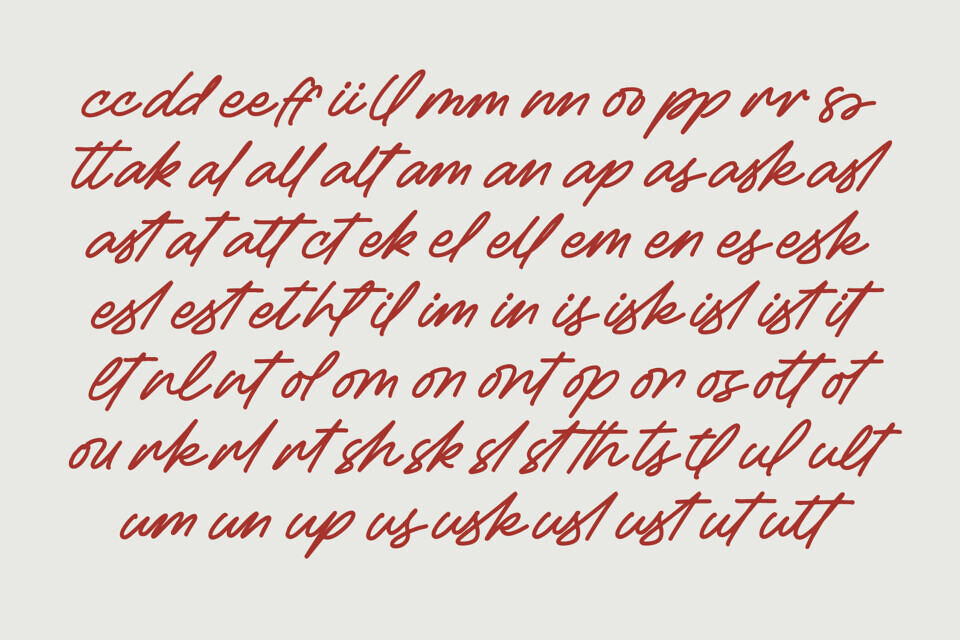 cc dd ee ff ii ll mm nn oo pp rr ss
tt ak al all alt am an ap as ask asl
ast at att ct ek el ell em en es esk
esl est et ht il im in is isk isl ist it
lt nl nt ol om on ont op or os ott ot
ou rk rl rt sh sk sl st th ts tl ul ult
um un up us usk usl ust ut utt